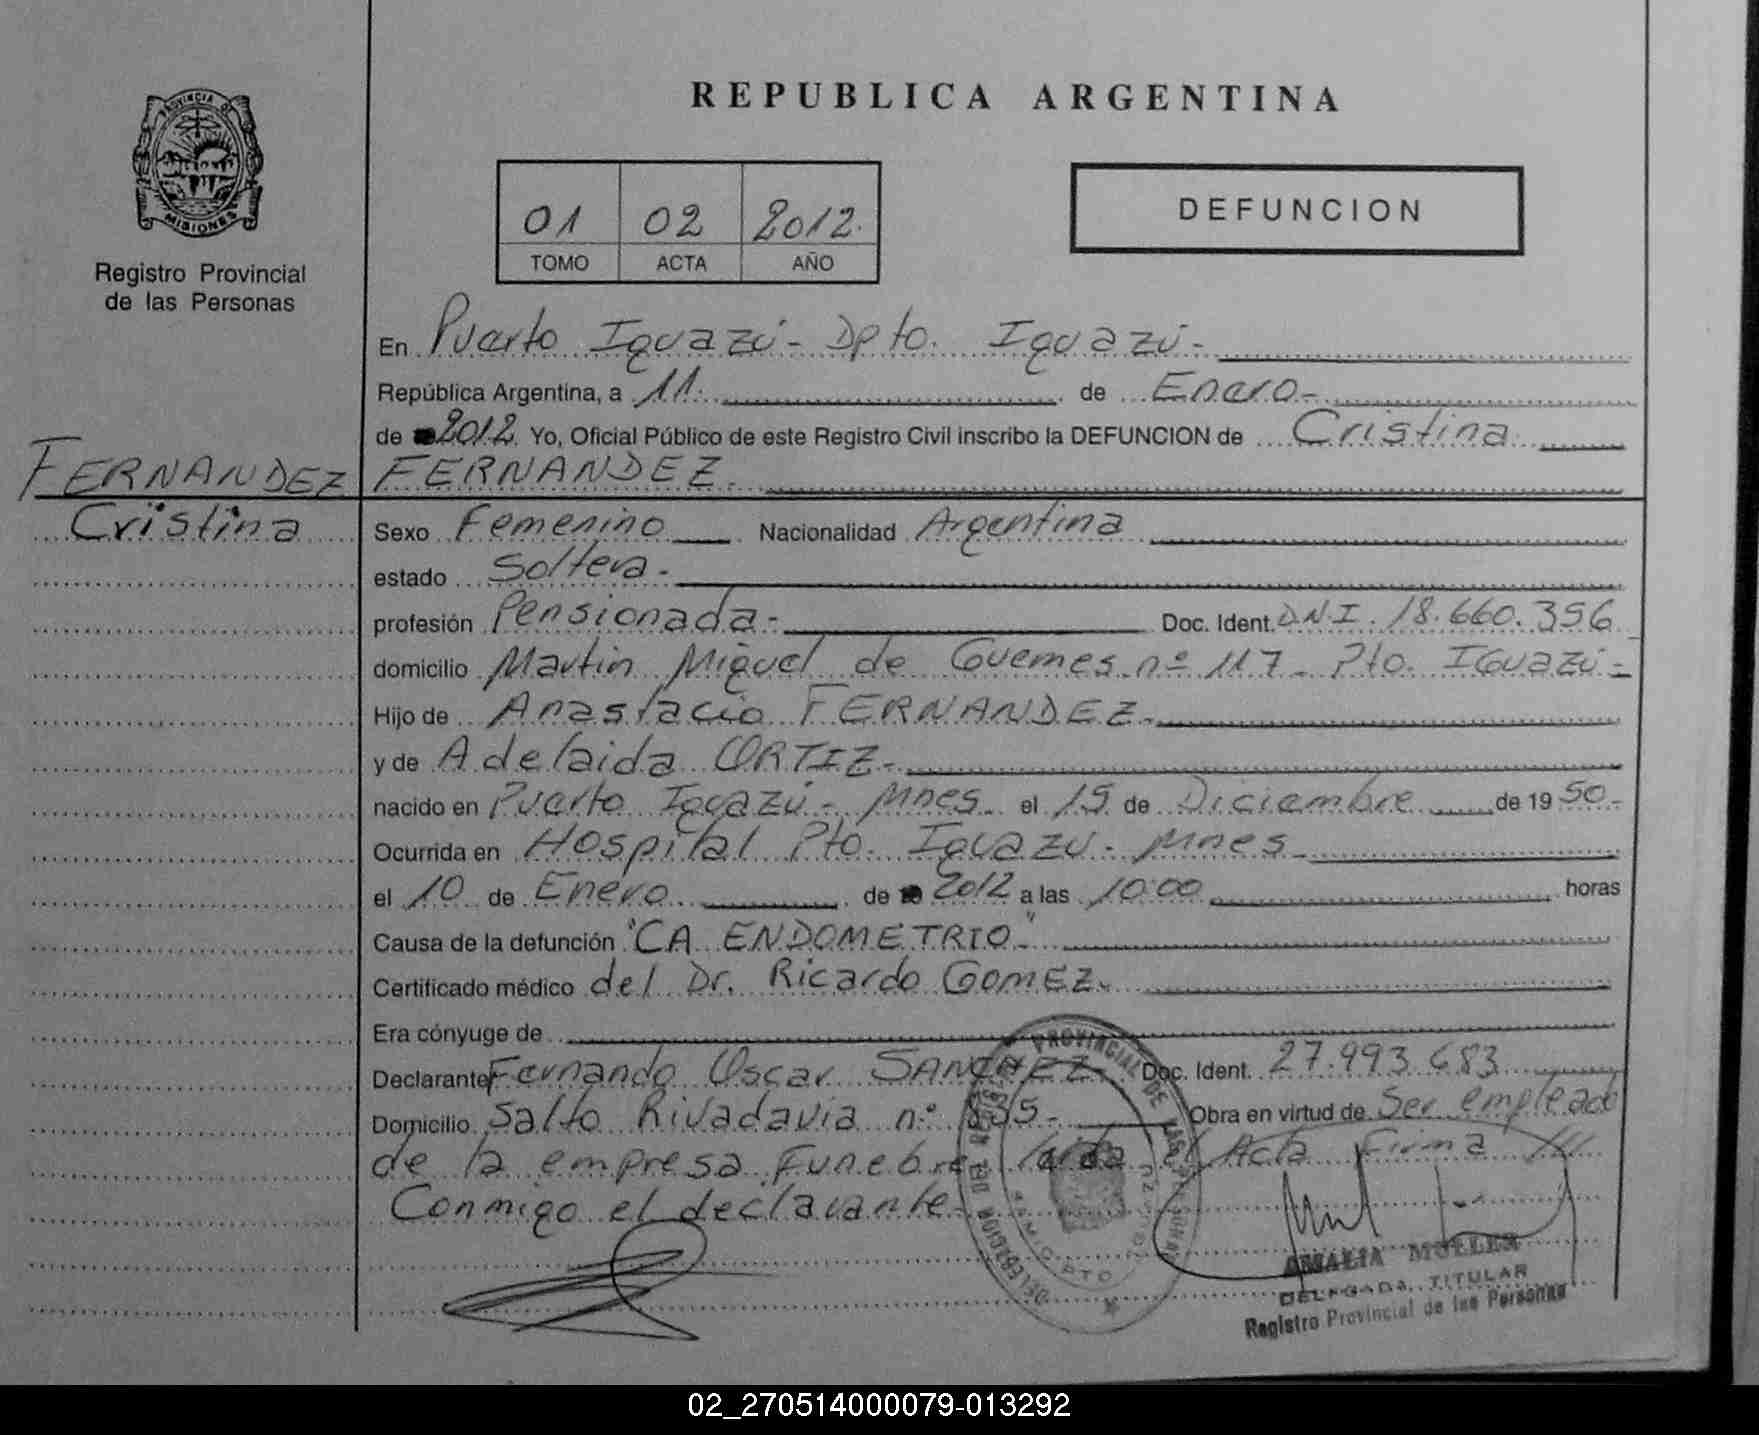 PROVINCIA DE
MISIONES
Registro Provincial
de las Personas
REPUBLICA ARGENTINA
01 02 2012.
TOMO ACTA AÑO
DEFUNCION
En Puerto Iguazú - Dpto. Iguazú -
República Argentina, a 11. de Enero -
de 2012. Yo, Oficial Público de este Registro Civil inscribo la DEFUNCION de Cristina
FERNANDEZ FERNANDEZ.
Cristina
Sexo Femenino Nacionalidad Argentina
estado Soltera -
profesión Pensionada - Doc. Ident. D.N.I. 18.660.356
domicilio Martin Miguel de Guemes nº 117 - Pto. IGuazú -
Hijo de Anastacio FERNANDEZ -
y de Adelaida ORTIZ -
nacido en Puerto Iguazú - Mnes. el 15 de Diciembre de 1950 -
Ocurrida en Hospital Pto. Iguazu - Mnes -
el 10 de Enero de 2012 a las 10:00 horas
Causa de la defunción "CA ENDOMETRIO"
Certificado médico del Dr. Ricardo GOMEZ.
Era cónyuge de
Declarante Fernando Oscar SANCHEZ - Doc. Ident. 27.993.683
Domicilio Salto Rivadavia nº 35 - Obra en virtud de Ser empleado
de la empresa Funebre el Acta Firma ///
Conmigo el declarante -
AMALIA MULLER
DELEGADA TITULAR
Registro Provincial de las Personas
02_270514000079-013292